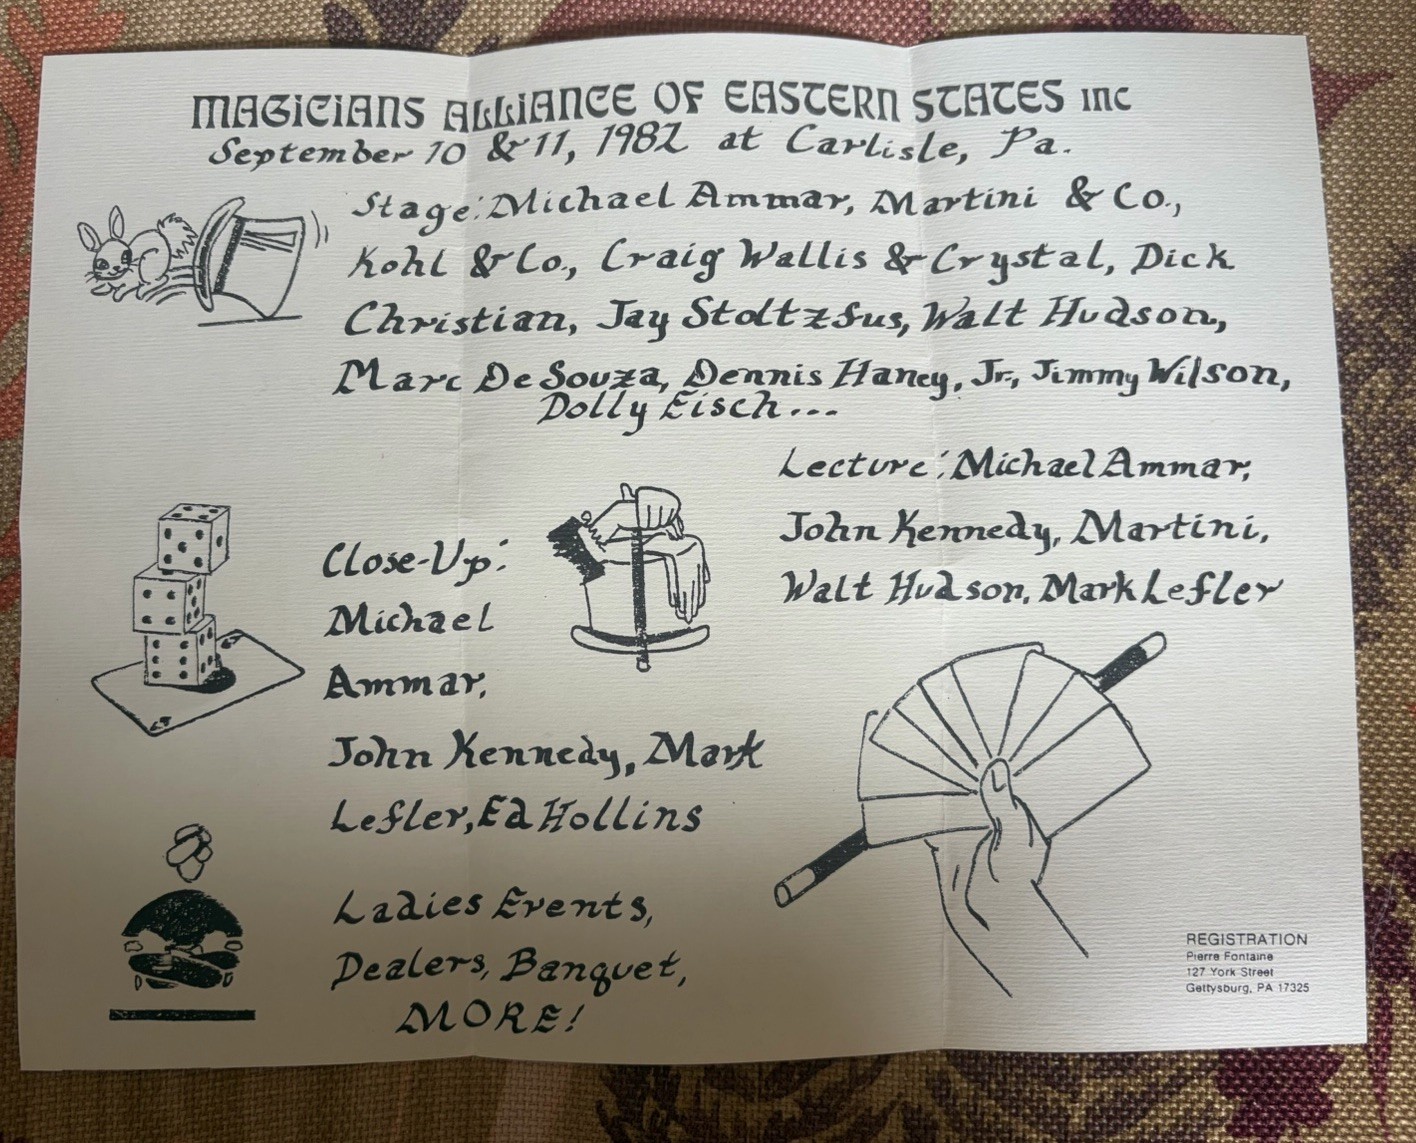 MAGICIANS ALLIANCE OF EASTERN STATES INC
September 10 & 11, 1982 at Carlisle, Pa.
Stage: Michael Ammar, Martini & Co.,
Kohl & Co., Craig Wallis & Crystal, Dick
Christian, Jay Stoltzfus, Walt Hudson,
Marc DeSouza, Dennis Haney, Jr., Jimmy Wilson,
Dolly Eisch...
Lecture: Michael Ammar,
John Kennedy, Martini,
Walt Hudson, Mark Lefler
Close-Up:
Michael
Ammar,
John Kennedy, Mark
Lefler, Ed Hollins
Ladies Events,
Dealers, Banquet,
MORE!
REGISTRATION
Pierre Fontaine
127 York Street
Gettysburg, PA 17325